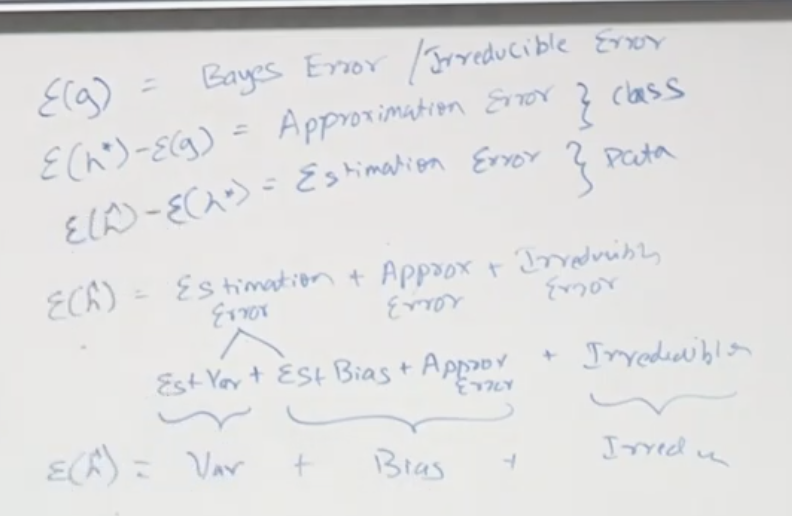 ε(g) = Bayes Error / Irreducible Error
ε(h*) - ε(g) = Approximation Error } class
ε(ĥ) - ε(h*) = Estimation Error } Data
ε(ĥ) = Estimation Error + Approx Error + Irreducible Error
Est Var + Est Bias + Approx Error + Irreducible
ε(ĥ) = Var + Bias + Irred